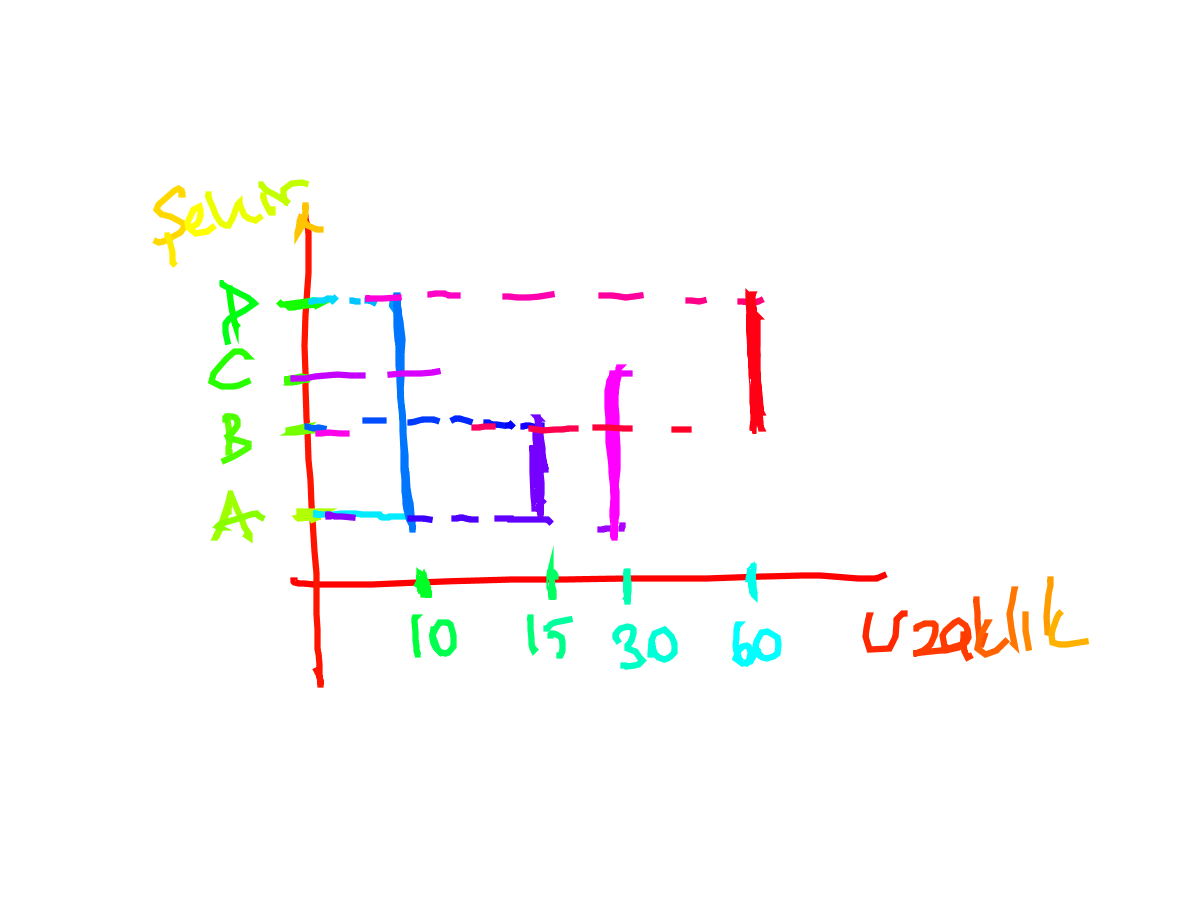 Şehir
D
C
B
A
10 15 30 60
Uzaklık